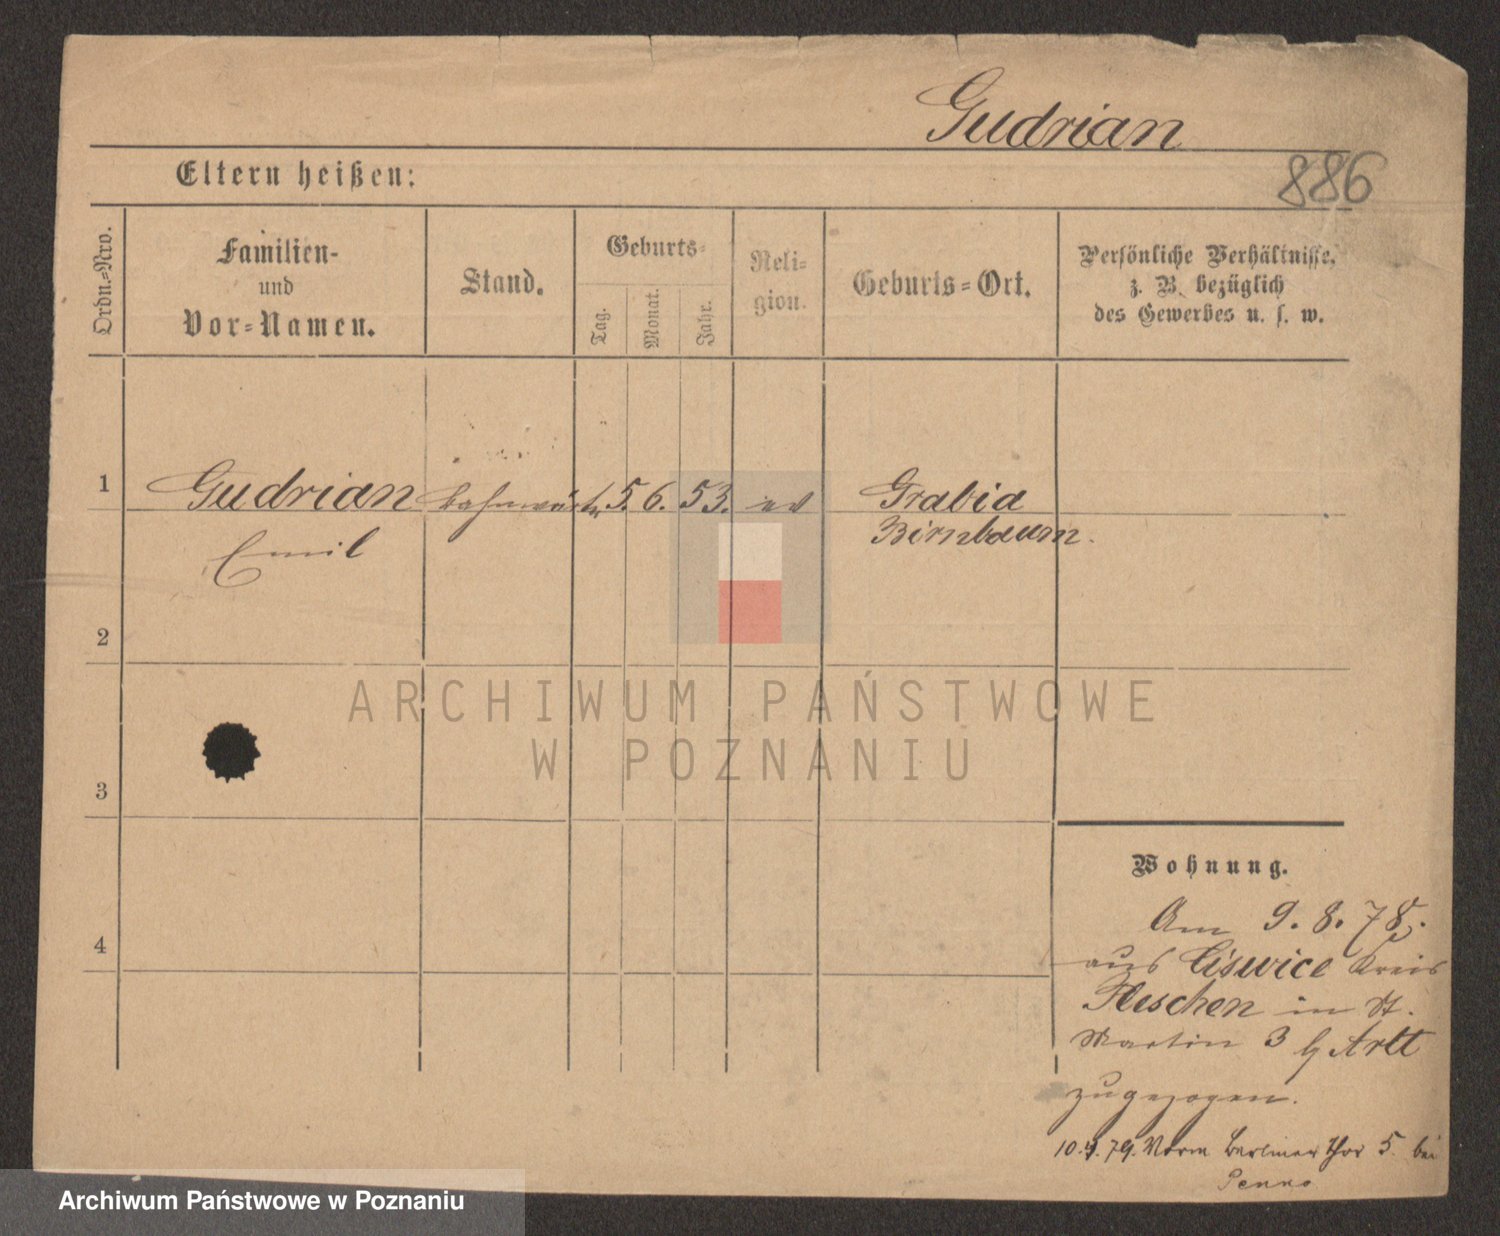 Gudrian
886
Eltern heißen:
Ordn.=Nro.
Familien-
und
Vor=Namen.
Stand.
Geburts=
Tag.
Monat.
Jahr.
Reli=
gion.
Geburts=Ort.
Persönliche Verhältnisse,
z. B. bezüglich
des Gewerbes u. s. w.
1
Gudrian Bahnwärter 5. 6. 53. ev Grabia
Emil
Birnbaum.
2
ARCHIWUM PAŃSTWOWE
W POZNANIU
3
4
Wohnung.
Am 9. 8. 78.
aus Ciswice Kreis
Pleschen in St.
Martin 3 b Arlt
zugezogen.
10.4.79. Vorm Berliner Thor 5. bei
Archiwum Państwowe w Poznaniu